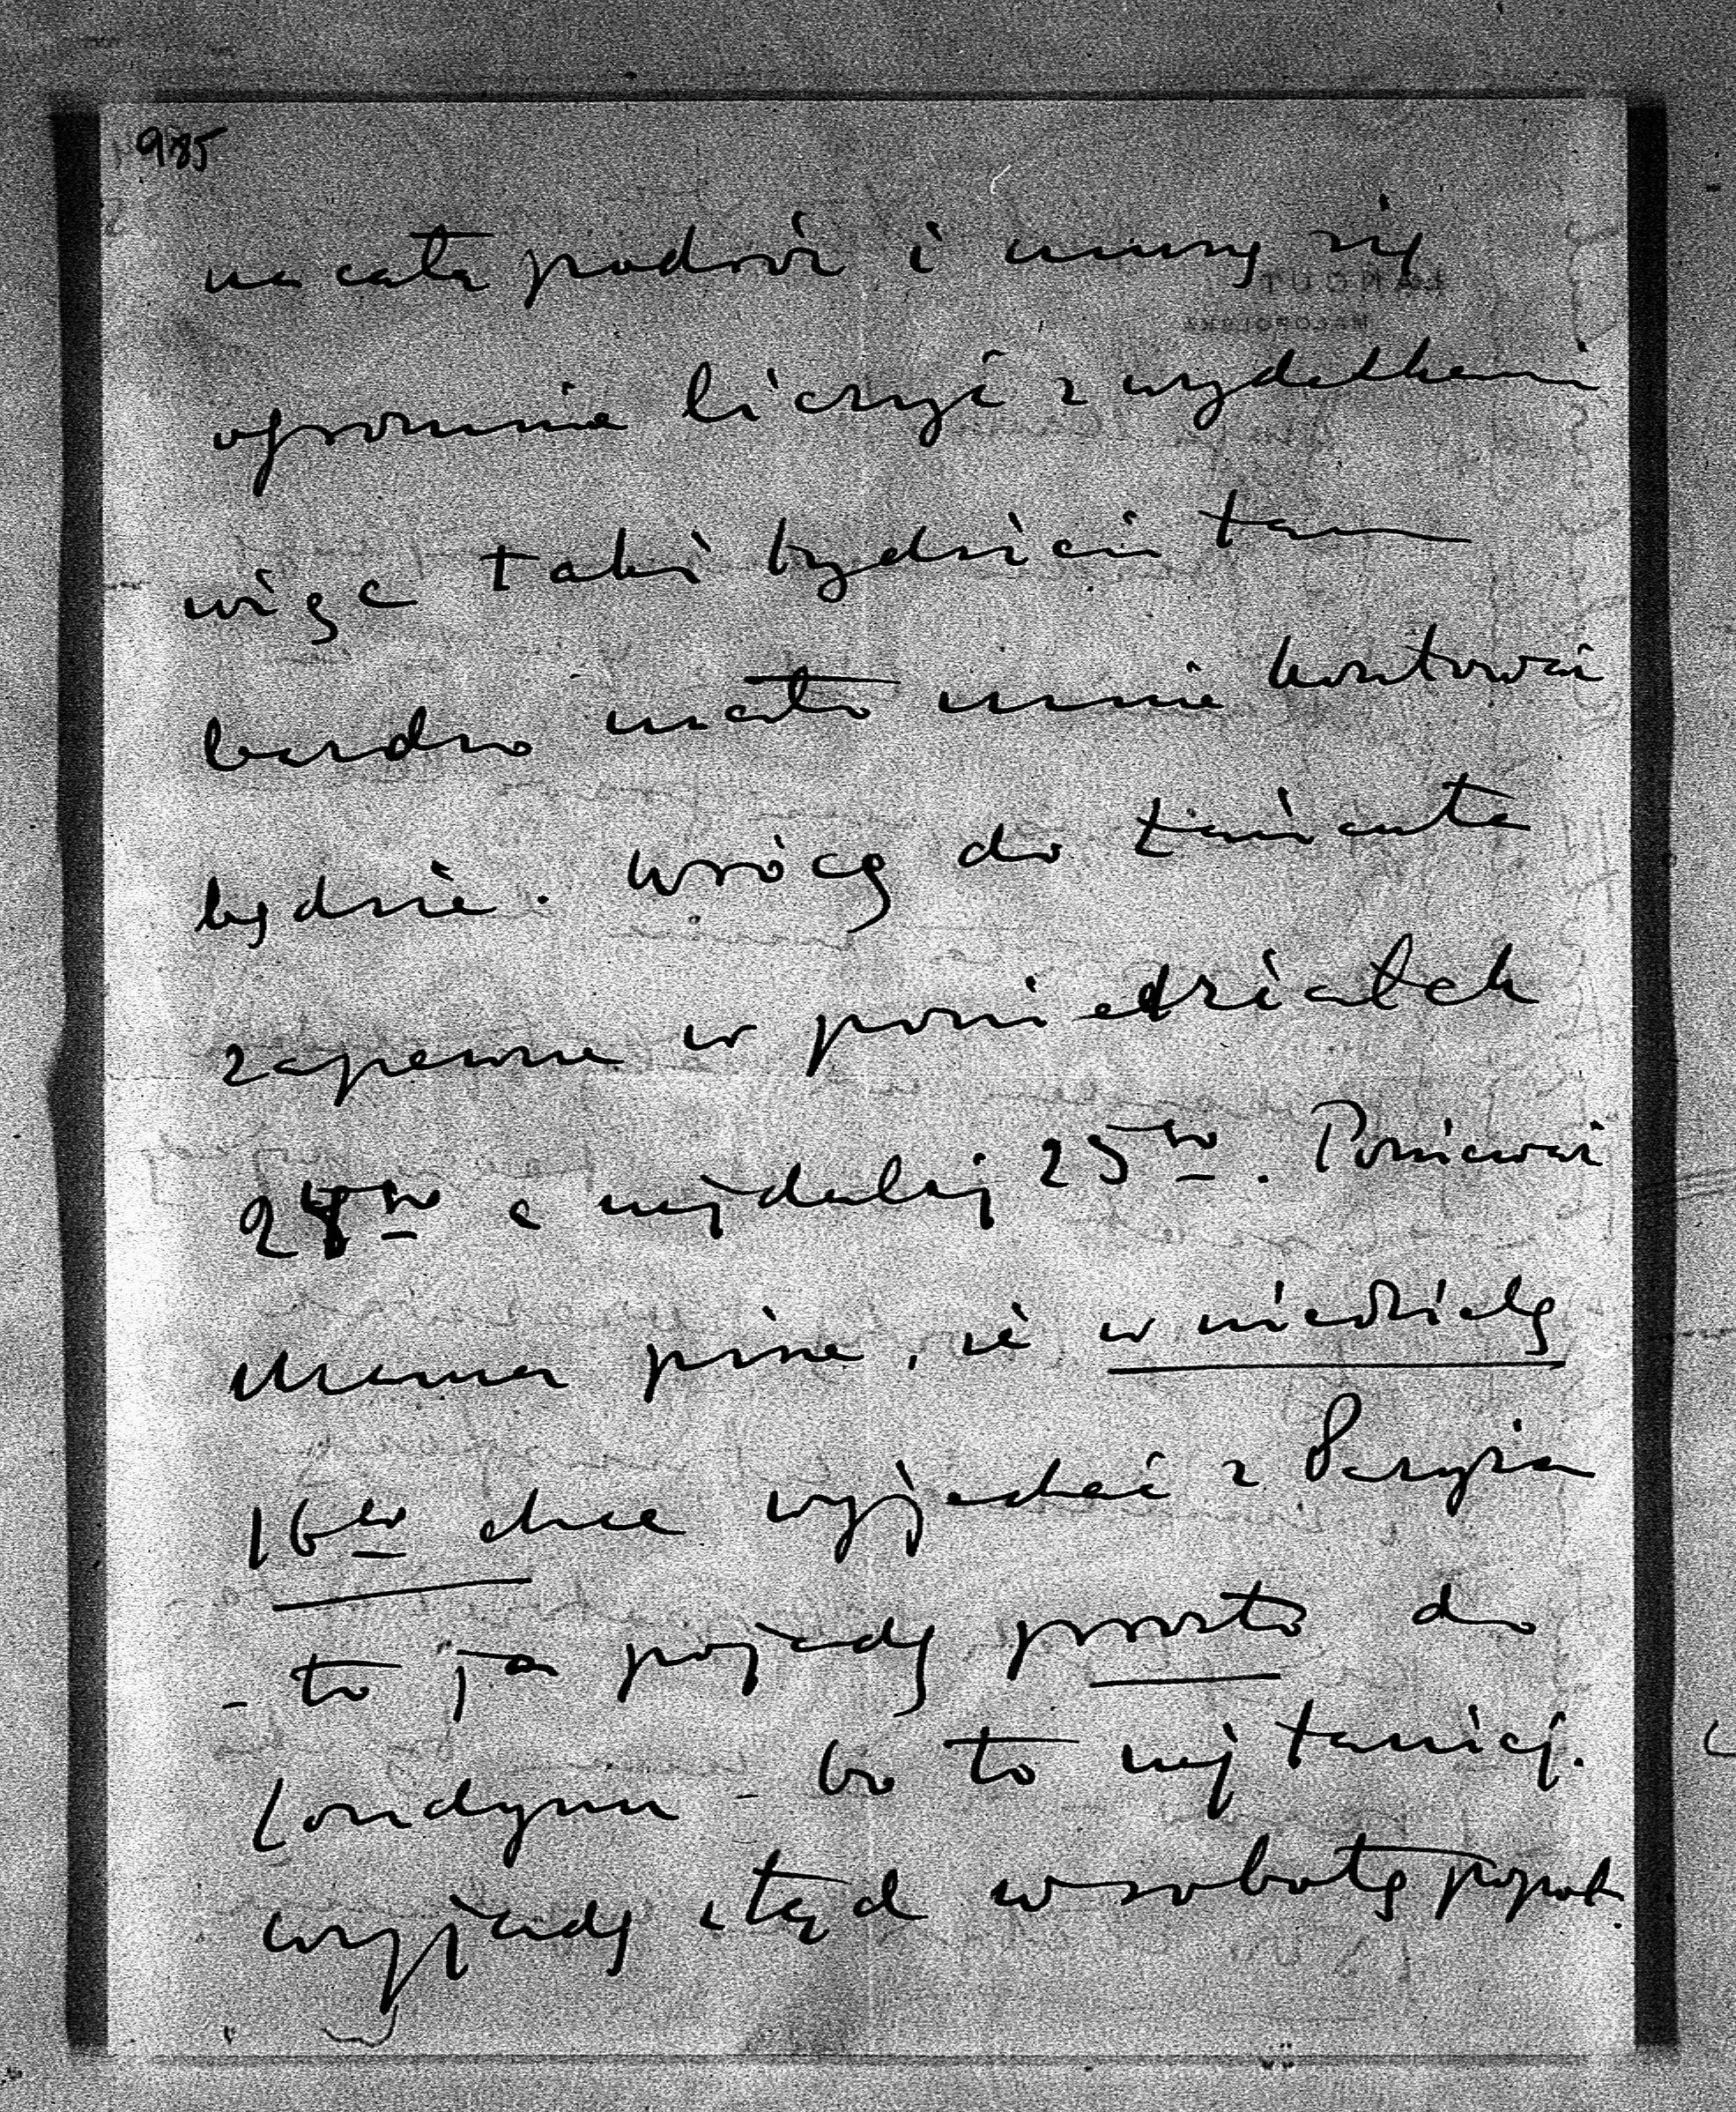 985
na całą podróż i muszę się
ogromnie liczyć z wydatkami
więc taki tydzień tam
bardzo mało mnie kosztować
będzie. Wrócę do Łańcuta
zapewne w poniedziałek
24go a najdalej 25go. Ponieważ
Mama pisze, że w niedzielę
16go chce wyjechać z Paryża
- to ja pojadę prosto do
Londynu - bo to najtaniej.
wyjadę stąd w sobotę popoł.